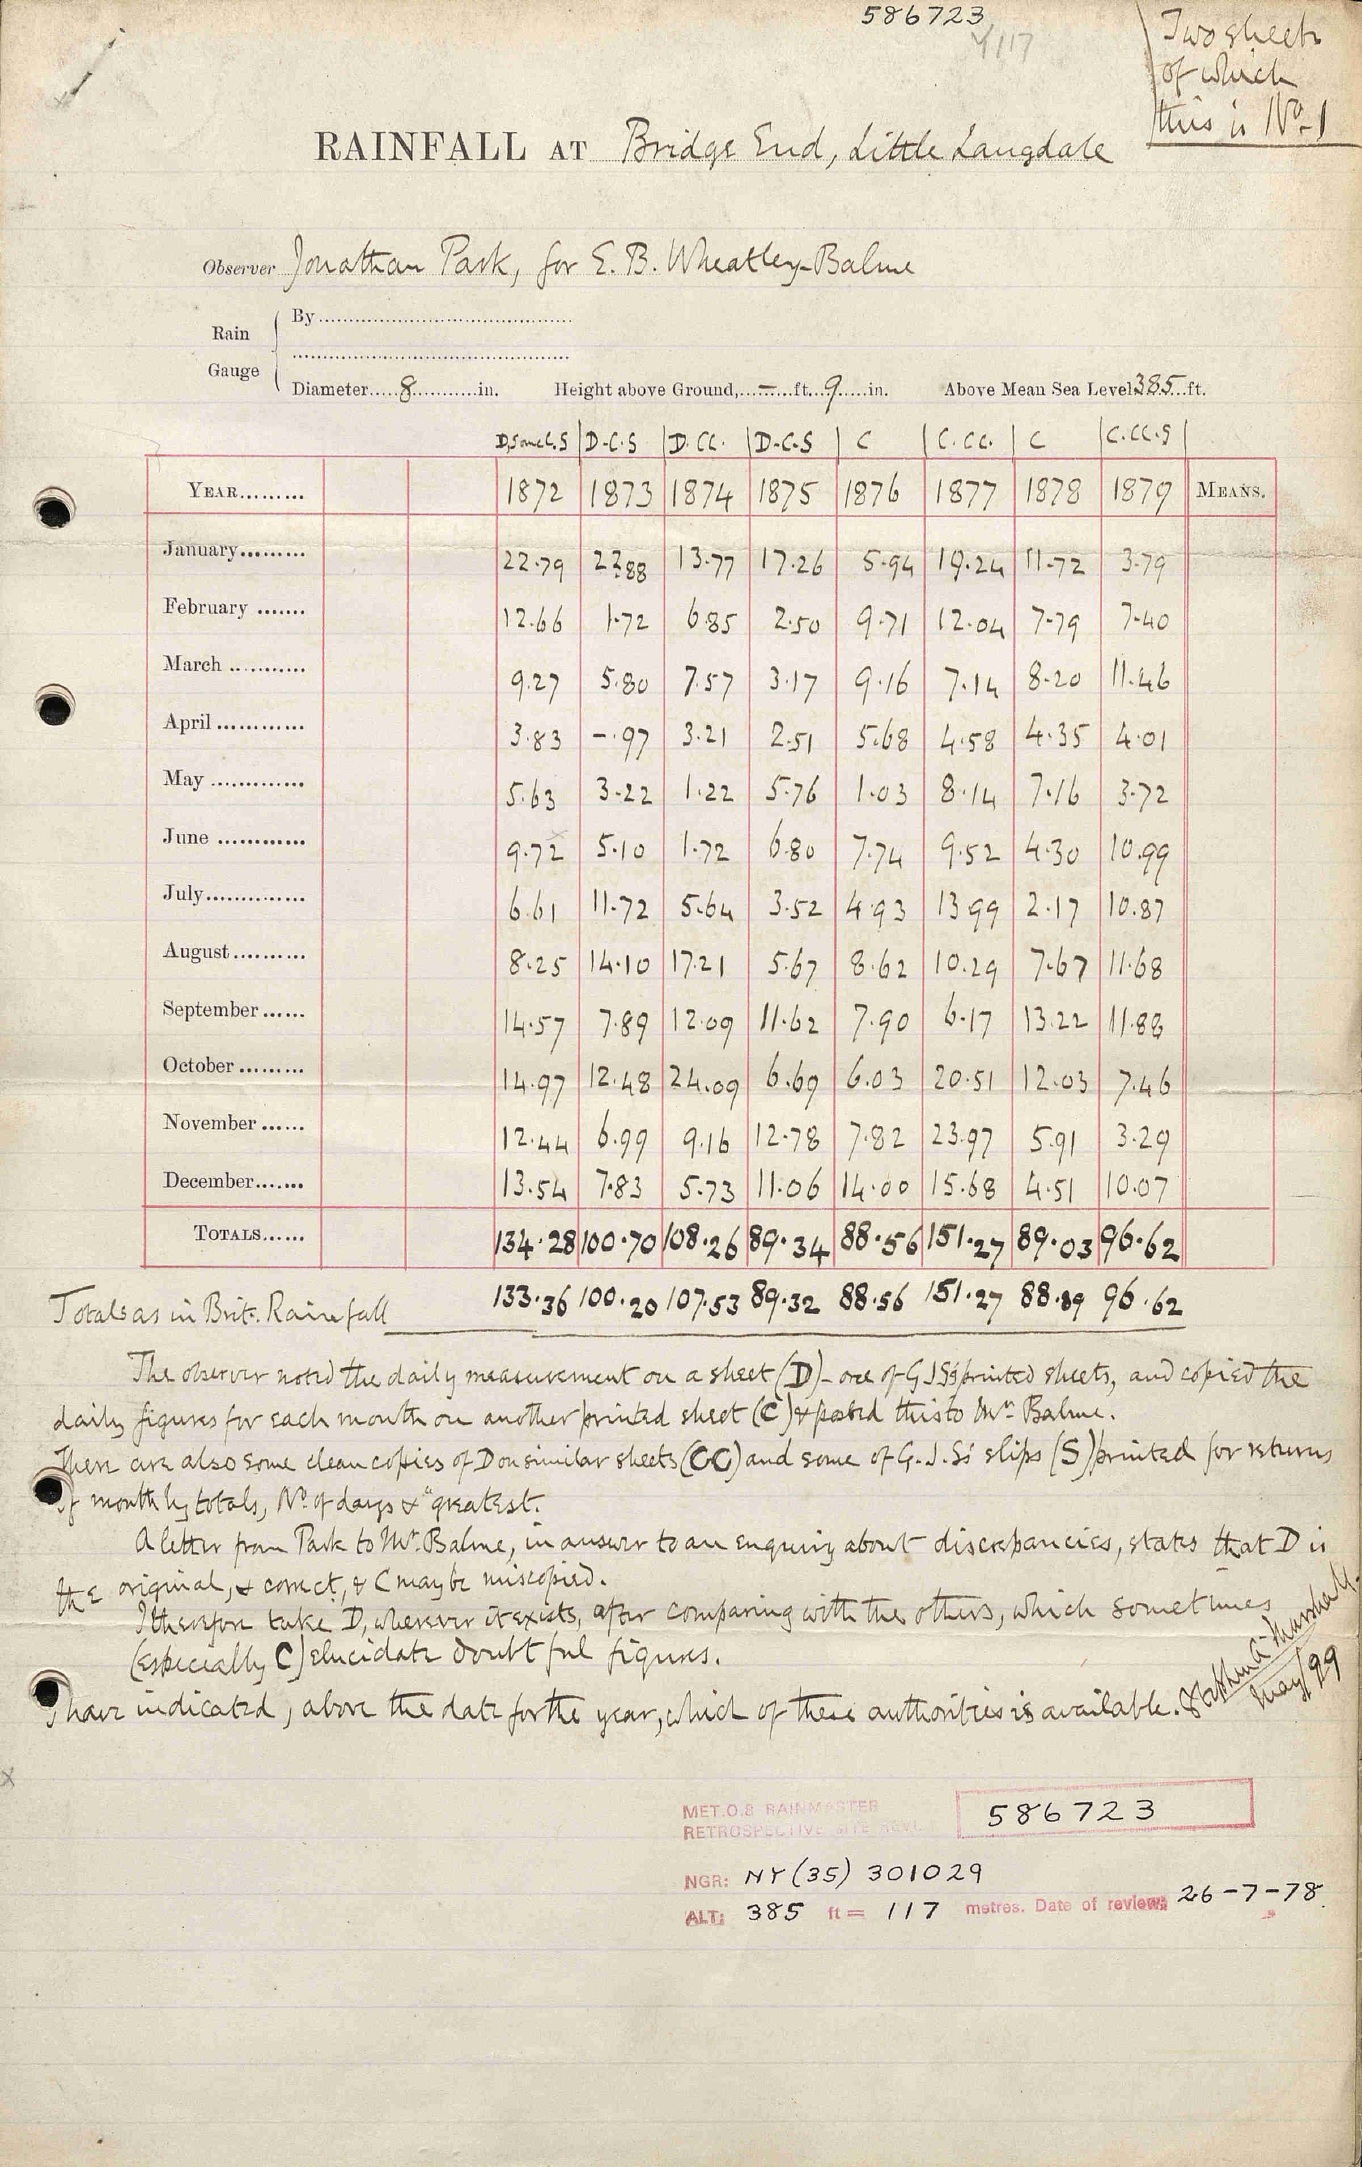 586723
4/117
Two sheets
of which
this is No. 1
RAINFALL AT Bridge End, Little Langdale
Observer Jonathan Park, for E. B. Wheatley-Balme
Rain Gauge
By
Diameter 8 in. Height above Ground, - ft. 9 in. Above Mean Sea Level 385 ft.
D, some C. S D-C-S D. CC. D-C-S C C. CC. C C. CC. S
YEAR 1872 1873 1874 1875 1876 1877 1878 1879 MEANS.
January 22.79 22.88 13.77 17.26 5.94 19.24 11.72 3.79
February 12.66 1.72 6.85 2.50 9.71 12.04 7.79 7.40
March 9.27 5.80 7.57 3.17 9.16 7.14 8.20 11.46
April 3.83 -.97 3.21 2.51 5.68 4.58 4.35 4.01
May 5.63 3.22 1.22 5.76 1.03 8.14 7.16 3.72
June 9.72 5.10 1.72 6.80 7.74 9.52 4.30 10.99
July 6.61 11.72 5.64 3.52 4.93 13.99 2.17 10.87
August 8.25 14.10 17.21 5.67 8.62 10.29 7.67 11.68
September 14.57 7.89 12.09 11.62 7.90 6.17 13.22 11.88
October 14.97 12.48 24.09 6.69 6.03 20.51 12.03 7.46
November 12.44 6.99 9.16 12.78 7.82 23.97 5.91 3.29
December 13.54 7.83 5.73 11.06 14.00 15.68 4.51 10.07
TOTALS 134.28 100.70 108.26 89.34 88.56 151.27 89.03 96.62
Totals as in Brit. Rainfall 133.36 100.20 107.53 89.32 88.56 151.27 88.89 96.62
The observer noted the daily measurement on a sheet (D) - one of G J Ss printed sheets, and copied the
daily figures for each month on another printed sheet (C) & posted this to Mr. Balme.
There are also some clean copies of D on similar sheets (CC) and some of G. J. Ss' slips (S) printed for returns
of monthly totals, No. of days & "greatest.
A letter from Park to Mr. Balme, in answer to an enquiry about discrepancies, states that D is
the original, & correct, & C may be miscopied.
I therefore take D, wherever it exists, after comparing with the others, which sometimes
(especially C) elucidate doubtful figures.
I have indicated, above the date for the year, which of these authorities is available.
Arthur A. Marshall
May/99
MET.O.8 RAINMASTER
RETROSPECTIVE SITE 586723
NGR: NY (35) 301029
ALT: 385 ft = 117 metres. Date of review: 26-7-78.